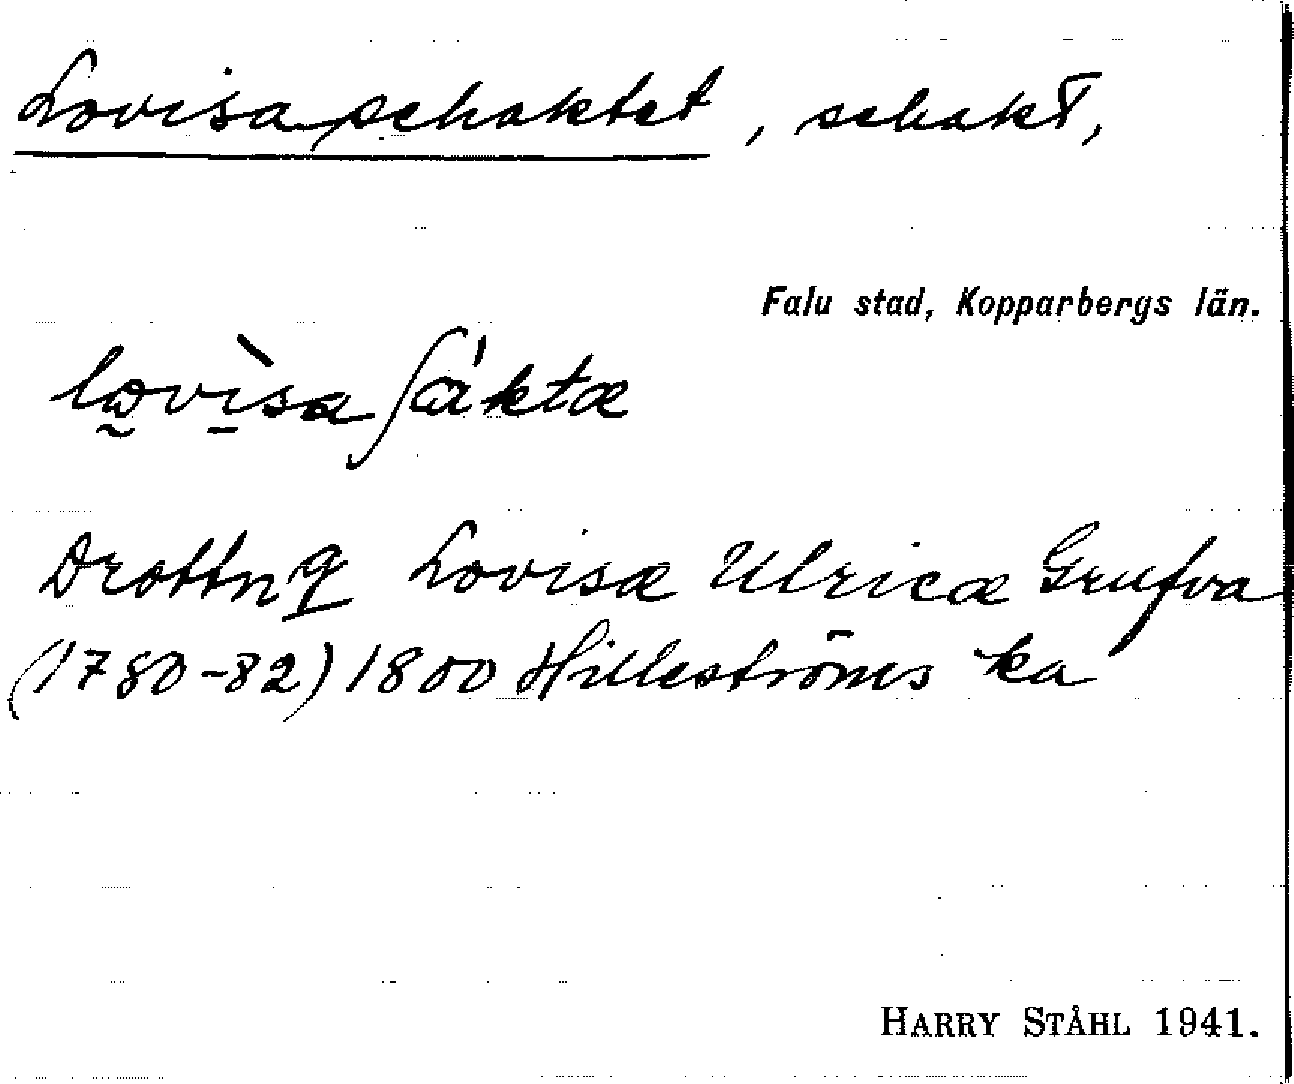 Lovisaschaktet, schakt,
Falu stad, Kopparbergs län.
lovìsaʃáktæ
Drottng Lovisæ Ulricæ Grufva
(1780-82) 1800 Hilleströms ka
HARRY STÅHL 1941.